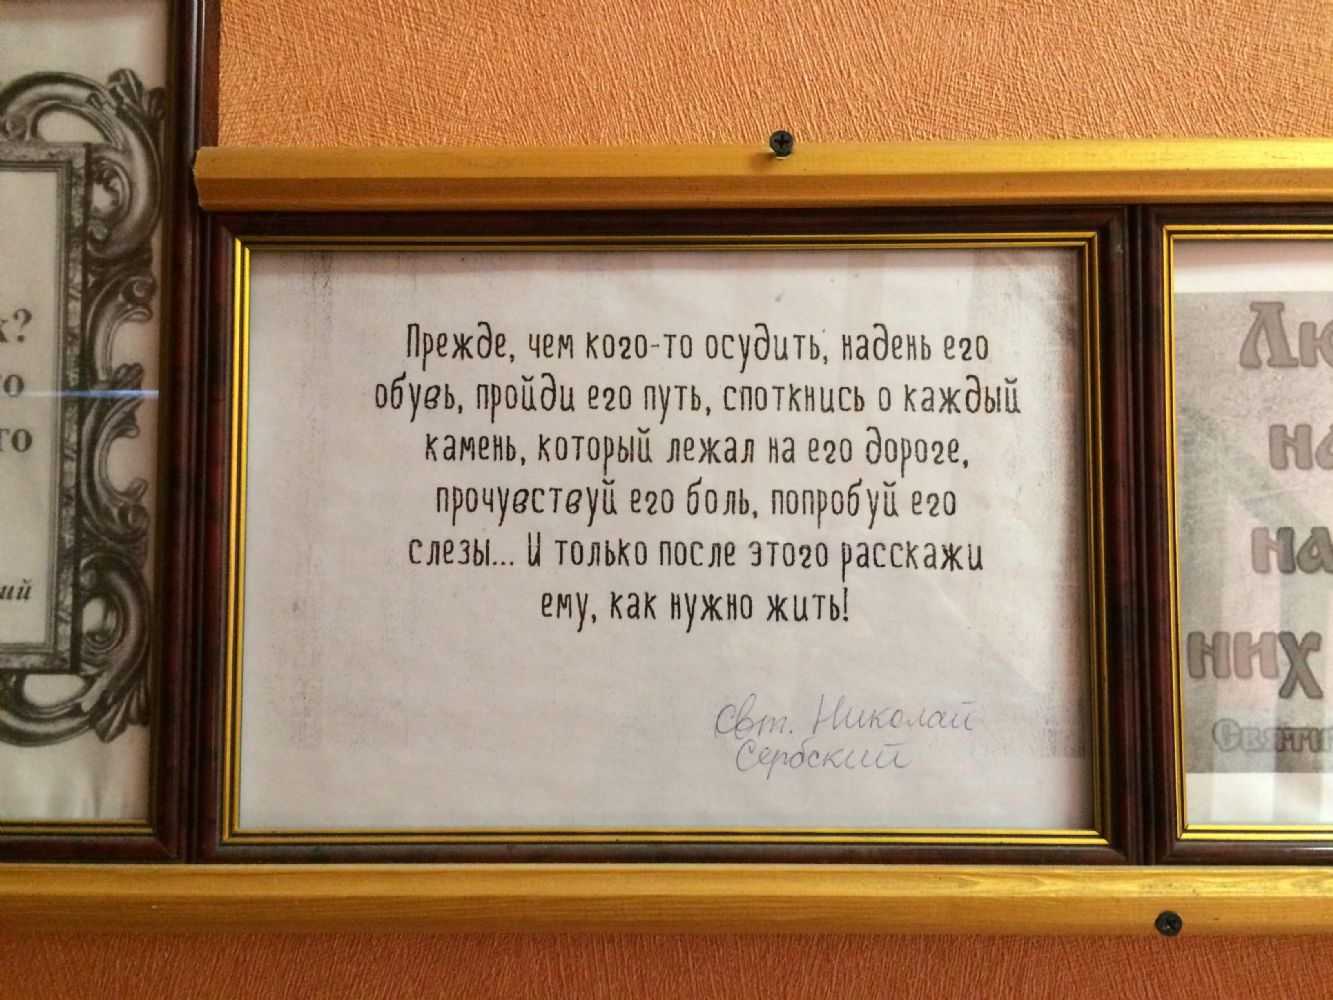 Прежде, чем кого-то осудить, надень его
обувь, пройди его путь, споткнись о каждый
камень, который лежал на его дороге,
прочувствуй его боль, попробуй его
слезы... И только после этого расскажи
ему, как нужно жить!
Свт. Николай
Сербский
на
них